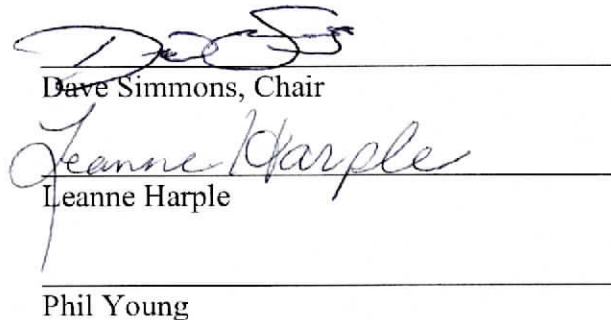 Dave Simmons, Chair
Leanne Harple
Leanne Harple
Phil Young